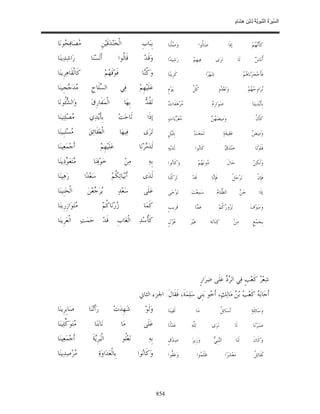 السّيرَة النَبَويّة لابْن هشَام
كَأَنّهُمْ إذَا صَالُوا وَصُلْنَا بِبَابِ الْخَنْدَقَيْنِ مُصَافِحُونَا
أُنَاسٌ لَا نَرَى فِيهِمْ رَشِيدًا وَقَدْ قَالُوا أَلَسْنَا رَاشِدِينَا
فَأَحْجَرْنَاهُمُ شَهْرًا كَرِيتًا وَكُنّا فَوْقَهُمْ كَالْقَاهِرِينَا
نُرَاوِحُهُمْ وَنَغْدُو كُلّ يَوْمٍ عَلَيْهِمْ فِي السّلَاحِ مُدَجّجِينَا
بِأَيْدِينَا صَوَارِمُ مُرْهَفَاتٌ نَقُدّ بِهَا الْمَفَارِقَ وَالشّئُونَا
كَأَنّ وَمِيضَهُنّ مُعَرّيَاتٍ إذَا لَاحَتْ بِأَيْدِي مُصْلِتِينَا
وَمِيضُ عَقِيقَةٍ لَمَعَتْ بِلَيْلٍ تَرَى فِيهَا الْعَقَائِقَ مُسْتَبِينَا
فَلَوْلَا خَنْدَقٌ كَانُوا لَدَيْهِ لَدَمّرْنَا عَلَيْهِمْ أَجْمَعِينَا
وَلَكِنْ حَالَ دُونَهُمْ وَكَانُوا بِهِ مِنْ خَوْفِنَا مُتَعَوّذِينَا
فَإِنْ نَرْحَلْ فَإِنّا قَدْ تَرَكْنَا لَدَى أَبْيَاتِكُمْ سَعْدًا رَهِينَا
إذَا جَنّ الظّلَامُ سَمِعْتَ نَوْحَى عَلَى سَعْدٍ يُرَجّعْنَ الْحَنِينَا
وَسَوْفَ نَزُورُكُمْ عَمّا قَرِيبٍ كَمَا زُرْنَاكُمْ مُتَوَازِرِينَا
بِجَمْعٍ مِنْ كِنَانَةَ غَيْرَ عُزْلٍ كَأُسْدِ الْغَابِ قَدْ حَمَتِ الْعَرِينَا
شِعْرُ كَعْبٍ فِي الرّدّ عَلَى ضِرَارٍ
أَجَابَهُ كَعْبُ بْنُ مَالِكٍ، أَخُو بَنِي سَلِمَةَ، فَقَالَ الجزء الثاني
وَسَائِلَةٍ تُسَائِلُ مَا لَقِينَا وَلَوْ شَهِدَتْ رَأَتْنَا صَابِرِينَا
صَبَرْنَا لَا نَرَى لِلّهِ عَدْلًا عَلَى مَا نَابَنَا مُتَوَكّلِينَا
وَكَانَ لَنَا النّبِيّ وَزِيرَ صِدْقٍ بِهِ نَعْلُو الْبَرِيّةَ أَجْمَعِينَا
نُقَاتِلُ مَعْشَرًا ظَلَمُوا وَعَقّوا وَكَانُوا بِالْعَدَاوَةِ مُرْصِدِينَا
854